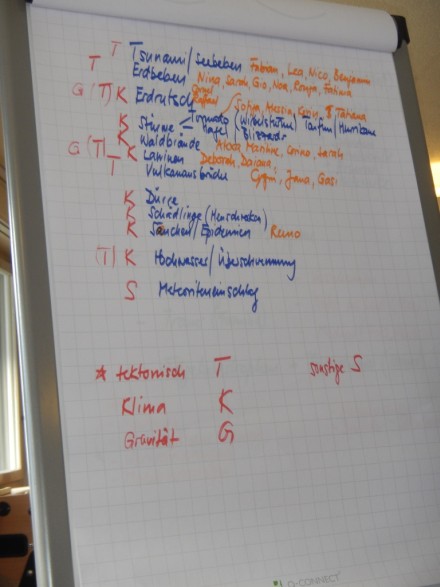 T T Tsunami/Seebeben Fabian, Lea, Nico, Benjamin
Erdbeben Nina, Sarah, Gio, Noa, Ronja, Fatima
G (T) K Erdrutsch Rafael Sofia, Alessia, Tatiana
K Stürme Tornado (Wirbelsturm) Taifun/Hurrikane
Hagel/Blizzard
K Waldbrände Martine, Corina, Sarah
G (T) K Lawinen Deborah, Daiana,
T Vulkanausbrüche Jana,
K Dürre
K Schädlinge (Heuschrecken)
K Seuchen/Epidemien Remo
(T) K Hochwasser/Überschwemmung
S Meteoriteneinschlag
* tektonisch T sonstige S
Klima K
Gravität G
Q-CONNECT